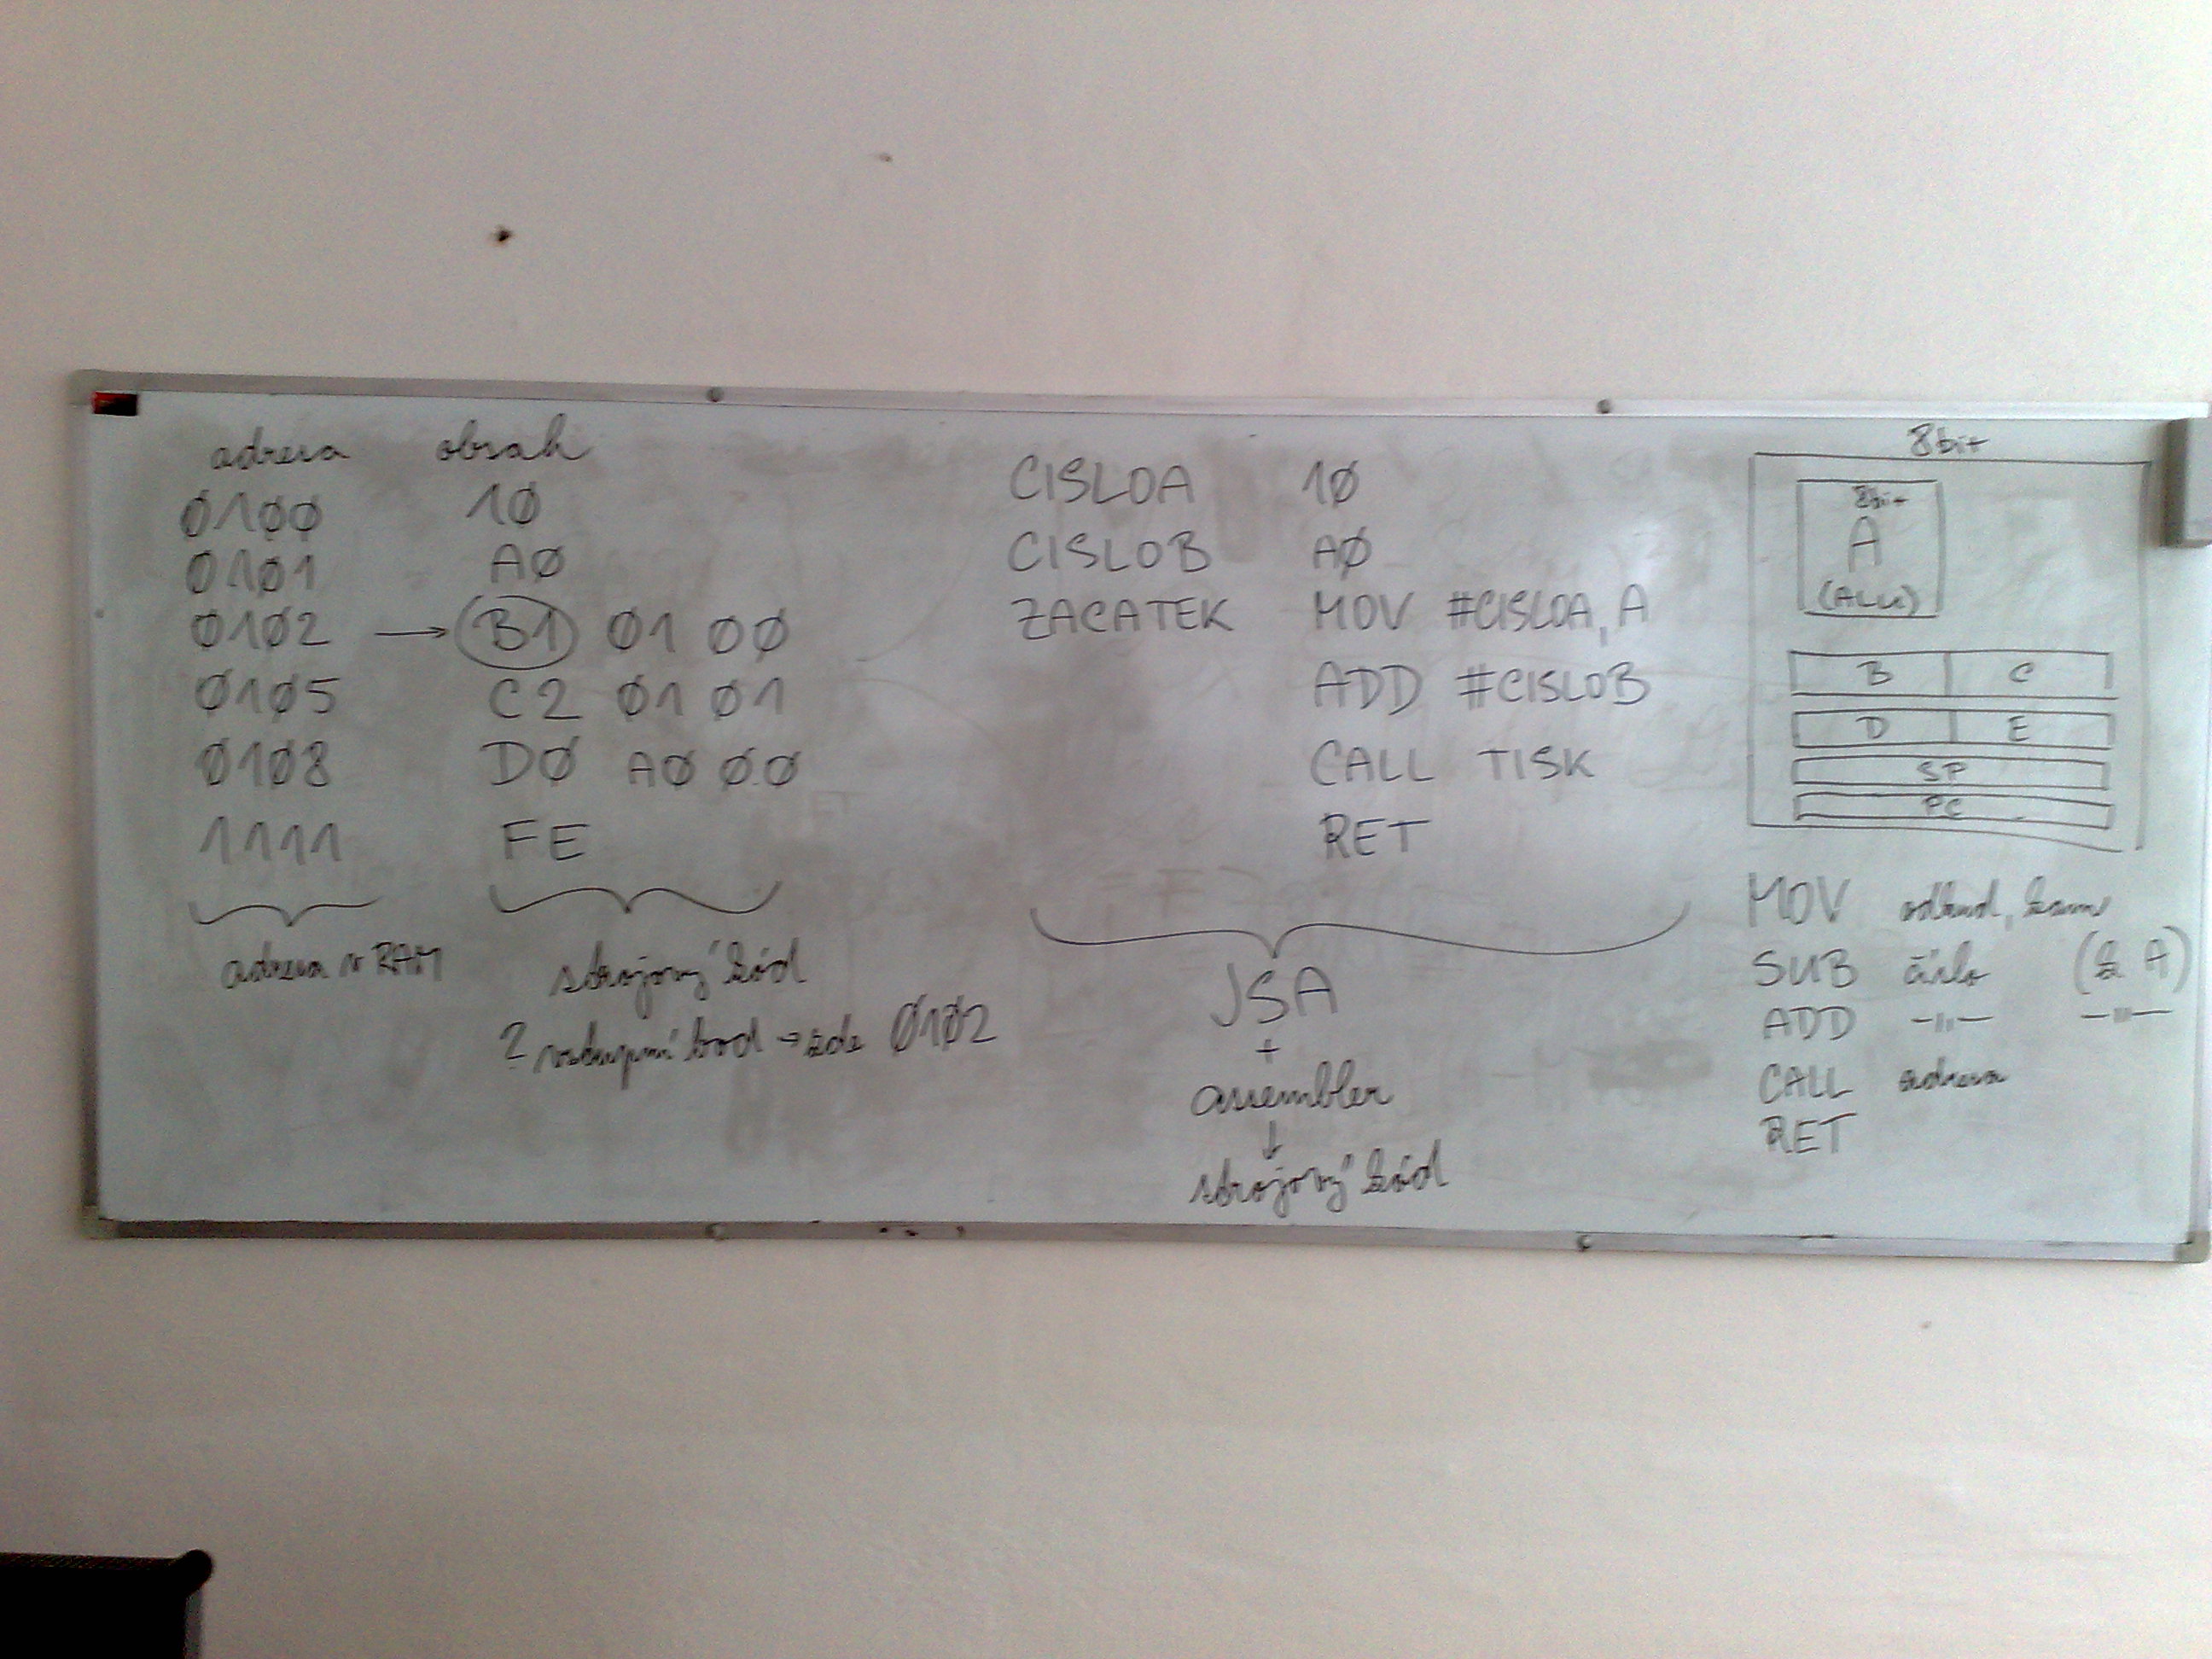 adresa obsah
0100 10
0101 A0
0102 → B1 01 00
0105 C2 01 01
0108 D0 A0 00
1111 FE
adresa v RAM
strojový kód
? vstupní bod → zde 0102
CISLOA 10
CISLOB A0
ZACATEK MOV #CISLOA, A
ADD #CISLOB
CALL TISK
RET
JSA
+
assembler
↓
strojový kód
8bit
8bit
A
(ALU)
B C
D E
SP
PC
MOV odkud, kam
SUB číslo (k A)
ADD —"— —"—
CALL adresa
RET